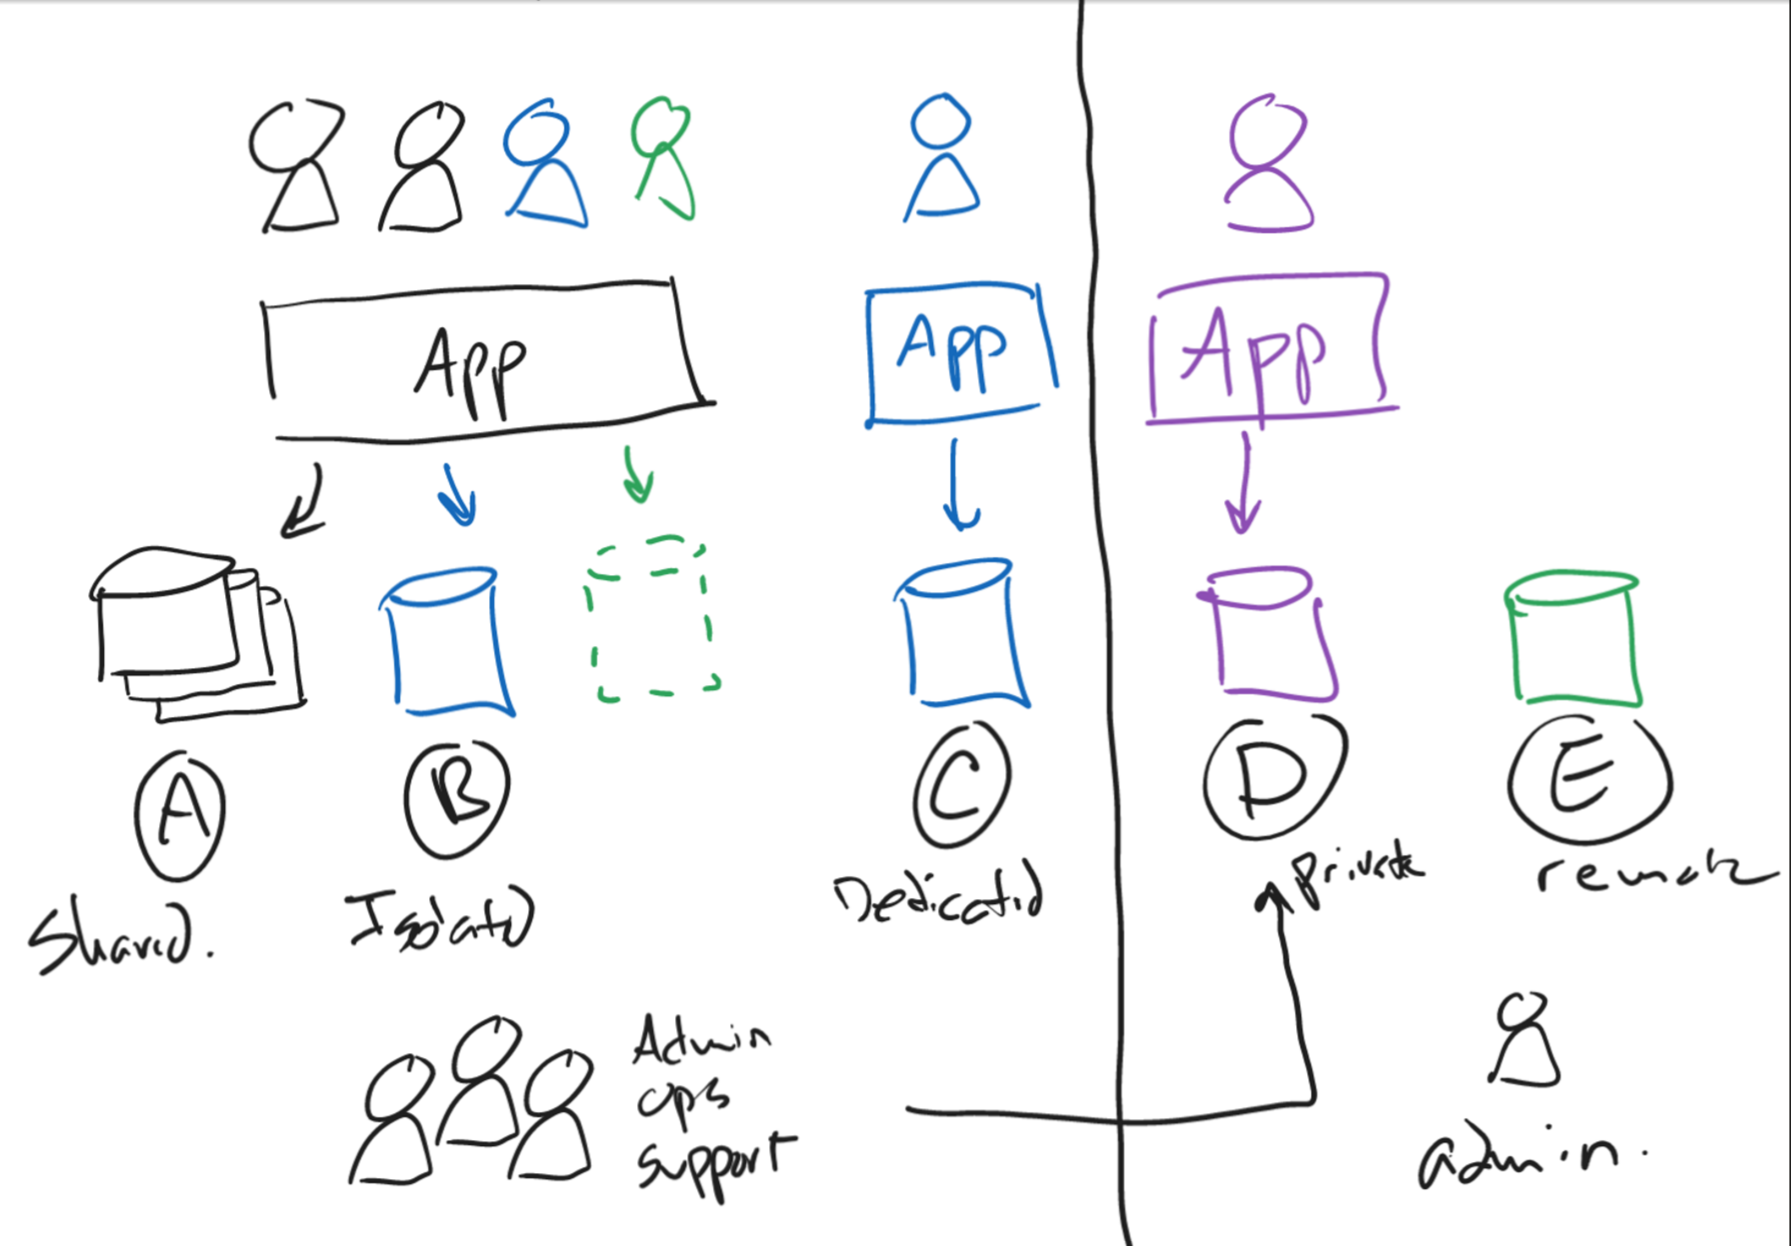 App
App
App
A
B
C
D
E
Shared.
Isolated
Dedicated
private
remote
Admin
ops
support
admin.